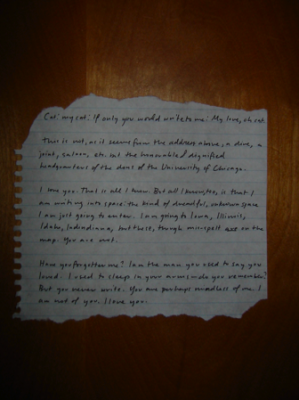 Cat! my cat! If only you would write to me! My love, oh cat.
This is not, as it seems from the address above, a dive, a
joint, saloon, etc. but the honorable & dignified
headquarters of the dons of the University of Chicago.
I love you. That is all I know. But all I know too, is that I
am writing into space: the kind of dreadful, unknown space
I am just going to enter. I am going to Iowa, Illinois,
Idaho, Indindiana, but these, though misspelt are on the
map. You are not.
Have you forgotten me? I am the man you used to say you
loved. I used to sleep in your arms - do you remember?
But you never write. You are perhaps mindless of me. I
am not of you. I love you.